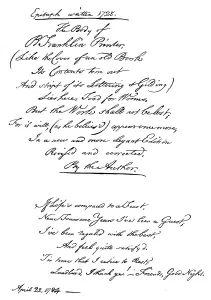 Epitaph written 1728.
The Body of
B Franklin Printer,
(Like the Cover of an old Book
Its Contents torn out
And stript of its Lettering & Gilding)
Lies here, Food for Worms.
But the Work shall not be lost;
For it will, (as he believ'd) appear once more,
In a new and more elegant Edition
Revised and corrected,
By the Author.
If Life's compared to a Feast,
Near Four-score Years I've been a Guest,
I've been regaled with the best,
And feel quite satisfy'd.
'Tis time that I retire to Rest;
Landlord I thank ye! Friends, Good Night.
April 22, 1784